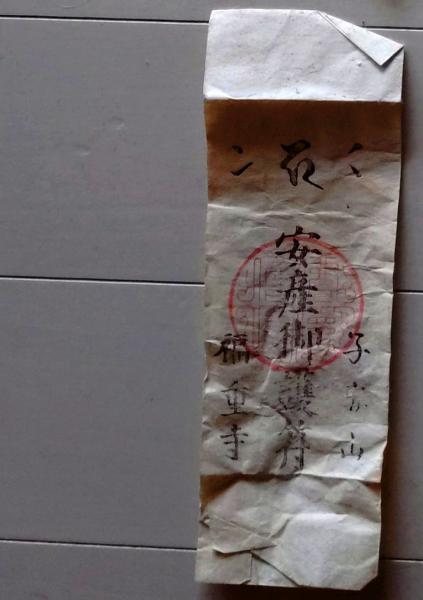 子安山
安産御護符
福重寺